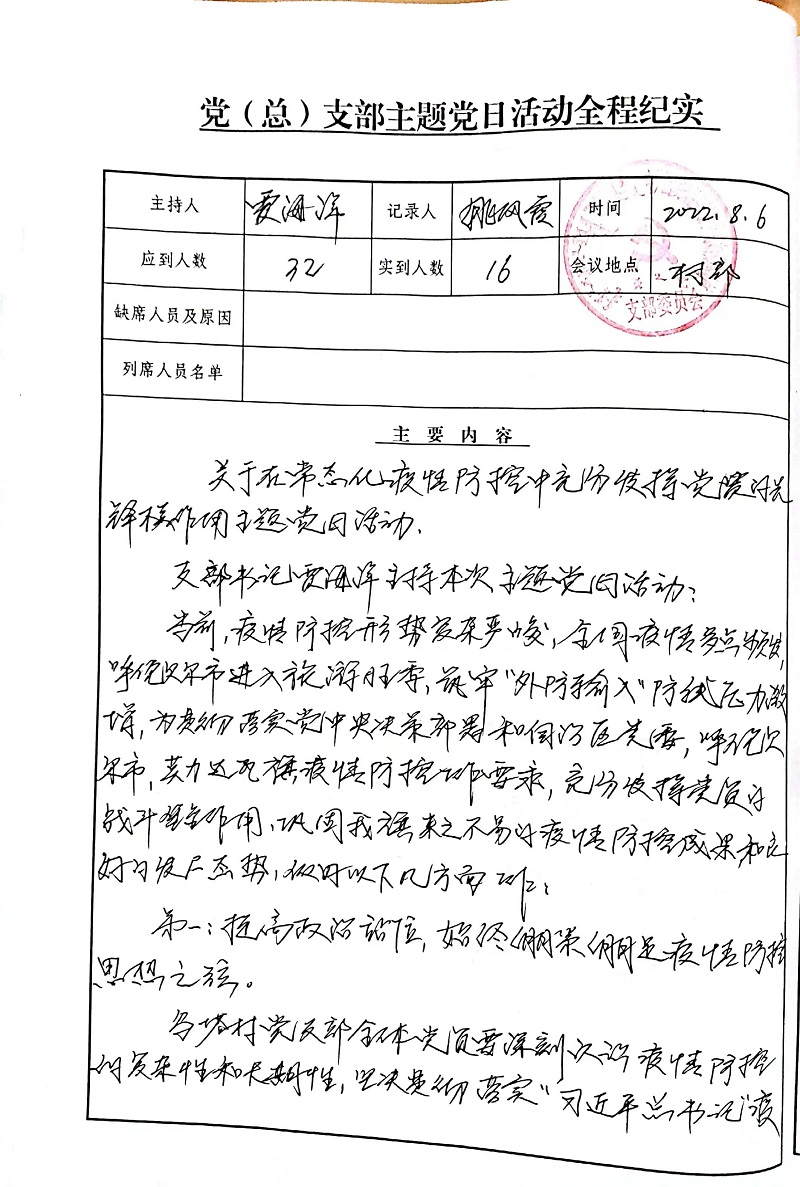 党（总）支部主题党日活动全程纪实
主持人 贾海洋 记录人 姚凤霞 时间 2022.8.6
应到人数 32 实到人数 16 会议地点 村部
缺席人员及原因
列席人员名单
支部委员会
主要内容
关于在常态化疫情防控中充分发挥党员的先
锋模作用主题党日活动.
支部书记贾海洋主持本次主题党日活动:
当前,疫情防控形势复杂严峻,全国疫情多点频发,
呼伦贝尔市进入旅游旺季,筑牢"外防输入"防线压力激
增,为贯彻落实党中央决策部署和自治区党委,呼伦贝
尔市,莫力达瓦旗疫情防控工作要求,充分发挥党员的
战斗堡垒作用,巩固我旗来之不易的疫情防控成果和良
好的发展态势,做好以下几方面工作:
第一:提高政治站位,始终绷紧绷足疫情防控
思想之弦。
村党支部全体党员要深刻认识疫情防控
的复杂性和长期性,坚决贯彻落实"习近平总书记"疫